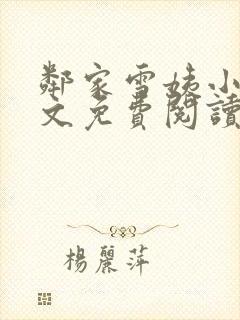 鄰家雪姨小
文免費閱讀
楊麗萍